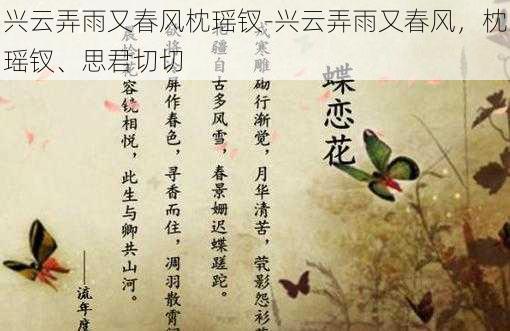 兴云弄雨又春风枕瑶钗-兴云弄雨又春风，枕
瑶钗、思君切切
蝶恋花
戍寒雕砌行渐觉，月华清苦，茕影怨衫
北疆自古多风雪，春景姗迟蝶蹉跎。
欲将 屏作春色，寻香而住，凋羽散霄
辰於花容镜相悦，此生与卿共山河。
——流年度